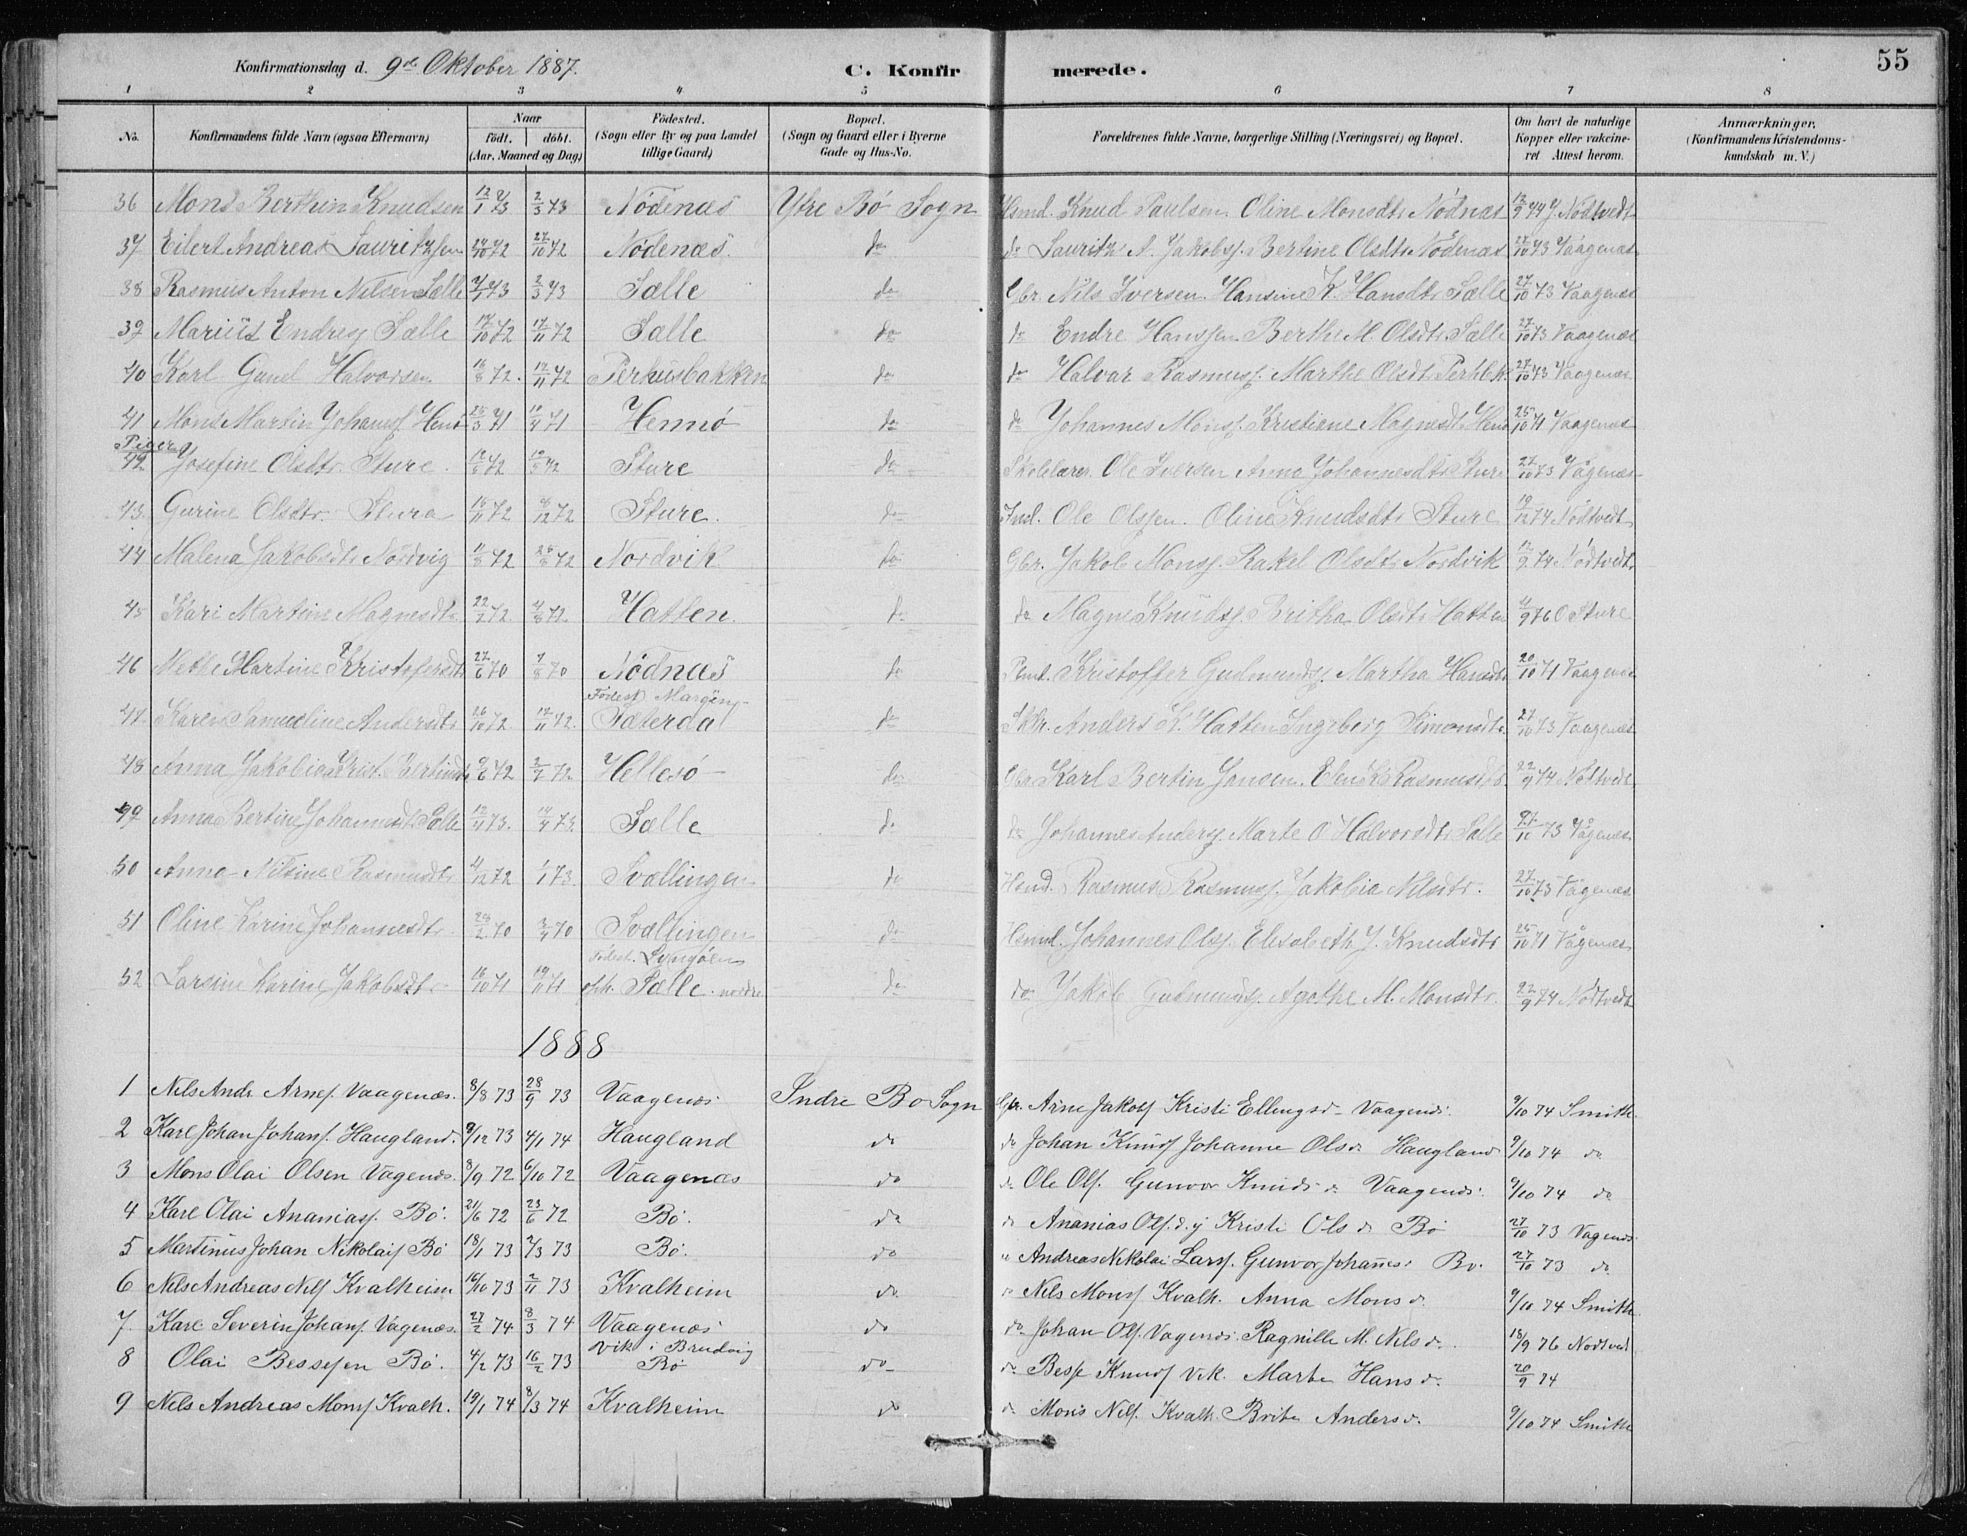 Konfirmationsdag d. 9de Oktober 1887.
C. Konfirmerede.
55
1 2 3 4 5 6 7 8
No.
Konfirmandens fulde Navn (ogsaa Efternavn)
Naar
födt. döbt.
(Aar, Maaned og Dag)
Födested.
(Sogn eller By og paa Landet
tillige Gaard)
Bopæl.
(Sogn og Gaard eller i Byerne
Gade og Hus-No.
Forældrenes fulde Navne, borgerlige Stilling (Næringsvei) og Bopæl.
Om havt de naturlige
Kopper eller vakcine-
ret Attest herom.
Anmærkninger,
(Konfirmandens Kristendoms-
kundskab m. V.)
36 Mons Berthin Knudsen 12/1 73 2/3 73 Nödenæs Ytre Bö Sogn Hsmd. Knud Paulsen Oline Monsdtr Nödnæs 12/9 74 J. Nödtvedt
37 Eilert Andreas Lauritzsen 24/10 72 27/10 72 Nödenæs. do do Lauritz A. Jakobsf. Bertine Olsdtr Nödenæs 27/10 73 Vaagenæs
38 Rasmus Anton Nilsen Sælle 73 2/3 73 Sælle do Gbr. Nils Iversen Hansine K. Hansdtr Sælle 27/10 73 Vaagenæs
39 Marius Endresf Sælle 17/10 72 17/11 72 Sælle do do Endre Hanssen Berthe M. Olsdtr Sælle 27/10 73 Vaagenæs
40 Karl Gunel Halvorsen 16/8 72. 17/11 72 Perhusbakken do do Halvar Rasmusf. Marthe Olsdtr Perhbk. 27/10 73 Vaagenæs
41 Mons Martin Johansf. Hend 25/3 71 10/4 71 Hennö do do Johannes Monsf. Kristiane Magnesdtr Hend 25/10 71 Vaagenæs
Piger
42 Josefine Olsdtr. Sture. 72 72 Sture do Skolelærer. Ole Iversen Anna Johannesdtr Sture 27/10 73 Vågenæs
43. Gurine Olsdtr Stura 72 8/12 72 Sture. do Insd. Ole Olssen. Oline Knudsdtr Sture 19/12 74 Nödtvedt
44 Malena Jakobsdtr Nordvig 11/8 72 25/8 72 Nordvik do Gbr. Jakob Monsf. Rakel Olsdtr Nordvik 12/9 74 Nödtvedt
45 Kari Martine Magnesdtr 22/7 72 4/8 72 Hatten. do do Magne Knudsf. Britha Olsdtr Hatten 9/9 76 O Sture
46 Methe Martine Kristofersdtr 27/6 70 7/8 70 Nödnæs do Kristoffer Gudmundsf. Martha Hansdtr 20/10 71 Vaagenæs
Födest
47. Karen Samueline Andersdtr 26/10 72 17/11 72. Sæterdal do Anders K. Hatten Ingeborg Simonsdtr. 27/10 73 Vaagenæs
48 Anna Jakobia Krist. Bertinsdtr 9/6 72 2/7 72 Hellesö do Karl Bertin Jansen. Elen K. Rasmusdtr. 22/9 74 Nödtvedt
49 Anna Bertine Johannesdtr Sælle 73. 14/4 73. Sælle do do Johannes Andersf. Marte O Halvorsdtr Sælle 73 Vågenæs
50 Anna Nilsine Rasmusdtr 4/12 72 1/1 73. Svællingen do Hsmd. Rasmus Rasmusf. Jakobia Nilsdtr. 27/10 73 Vågenæs
51 Oline Karine Johannesdtr 28/2 70 3/4 70 Svællingen do Hsmd. Johannes Olsf. Elisabeth J. Knudsdtr 25/10 71 Vågenæs
Födest. Lyngöen
52 Larsine Karine Jakobsdtr 16/10 71 19/11 71 oph. Sælle nordre do do Jakob Gudmundsf. Agathe M. Monsdtr. 22/9 74 Nödtvedt
1888
1 Nels Andr. Arnes. Vaagenæs. 8/8 73 28/9 73 Vaagenæs Indre Bo Sogn Gbr. Arne Jakobs Kristi Ellingsd Vaagenæs. 9/10 74 Smith.
2 Karl Johan Johans. Haugland. 9/12 73 4/1 74 Haugland do do Johan Knuds Johanne Olsd Haugland 9/10 74 do
3 Mons Olai Olsen Vagenæs. 8/9 72 6/10 72 Vaagenæs do do Ole Ols. Gunvor Knudsd. Vaagenæs. 9/10 74 do
4 Karl Olai Ananias. Bö. 21/6 72 23/6 72 Bö. do do Ananias Ols. d.y Kristi Olsd Bö 27/10 73 Vagenæs.
5 Martinus Johan Nikolais Bö 18/1 73 2/3 73 Bö. do Andreas Nikolai Lars. Gunvor Johañes Bö. 27/10 73 do
6 Nels Andreas Nels Kvalheim 16/10 73 2/11 73 Kvalheim do Nels Mons Kvalh. Anna Monsd. 9/10 74 Smith
7. Karl Severin Johans. Vagenæs. 27/2 74 8/3 74 Vaagenæs do do Johan Ols. Vagenæs. Ragnille M. Nelsd. 18/9 76 Nodtved
Vik i Brudvig
8 Olai Bessesen Bö. 4/2 73 16/2 73 Bö do do Besse Knuds Vik. Marte Hansd. 20/9 74
9 Nels Andreas Mons Kvalh. 19/1 74 8/3 74 Kvalheim do do Mons Nels. Kvalh. Brite Andersd. 9/10 74 Smith